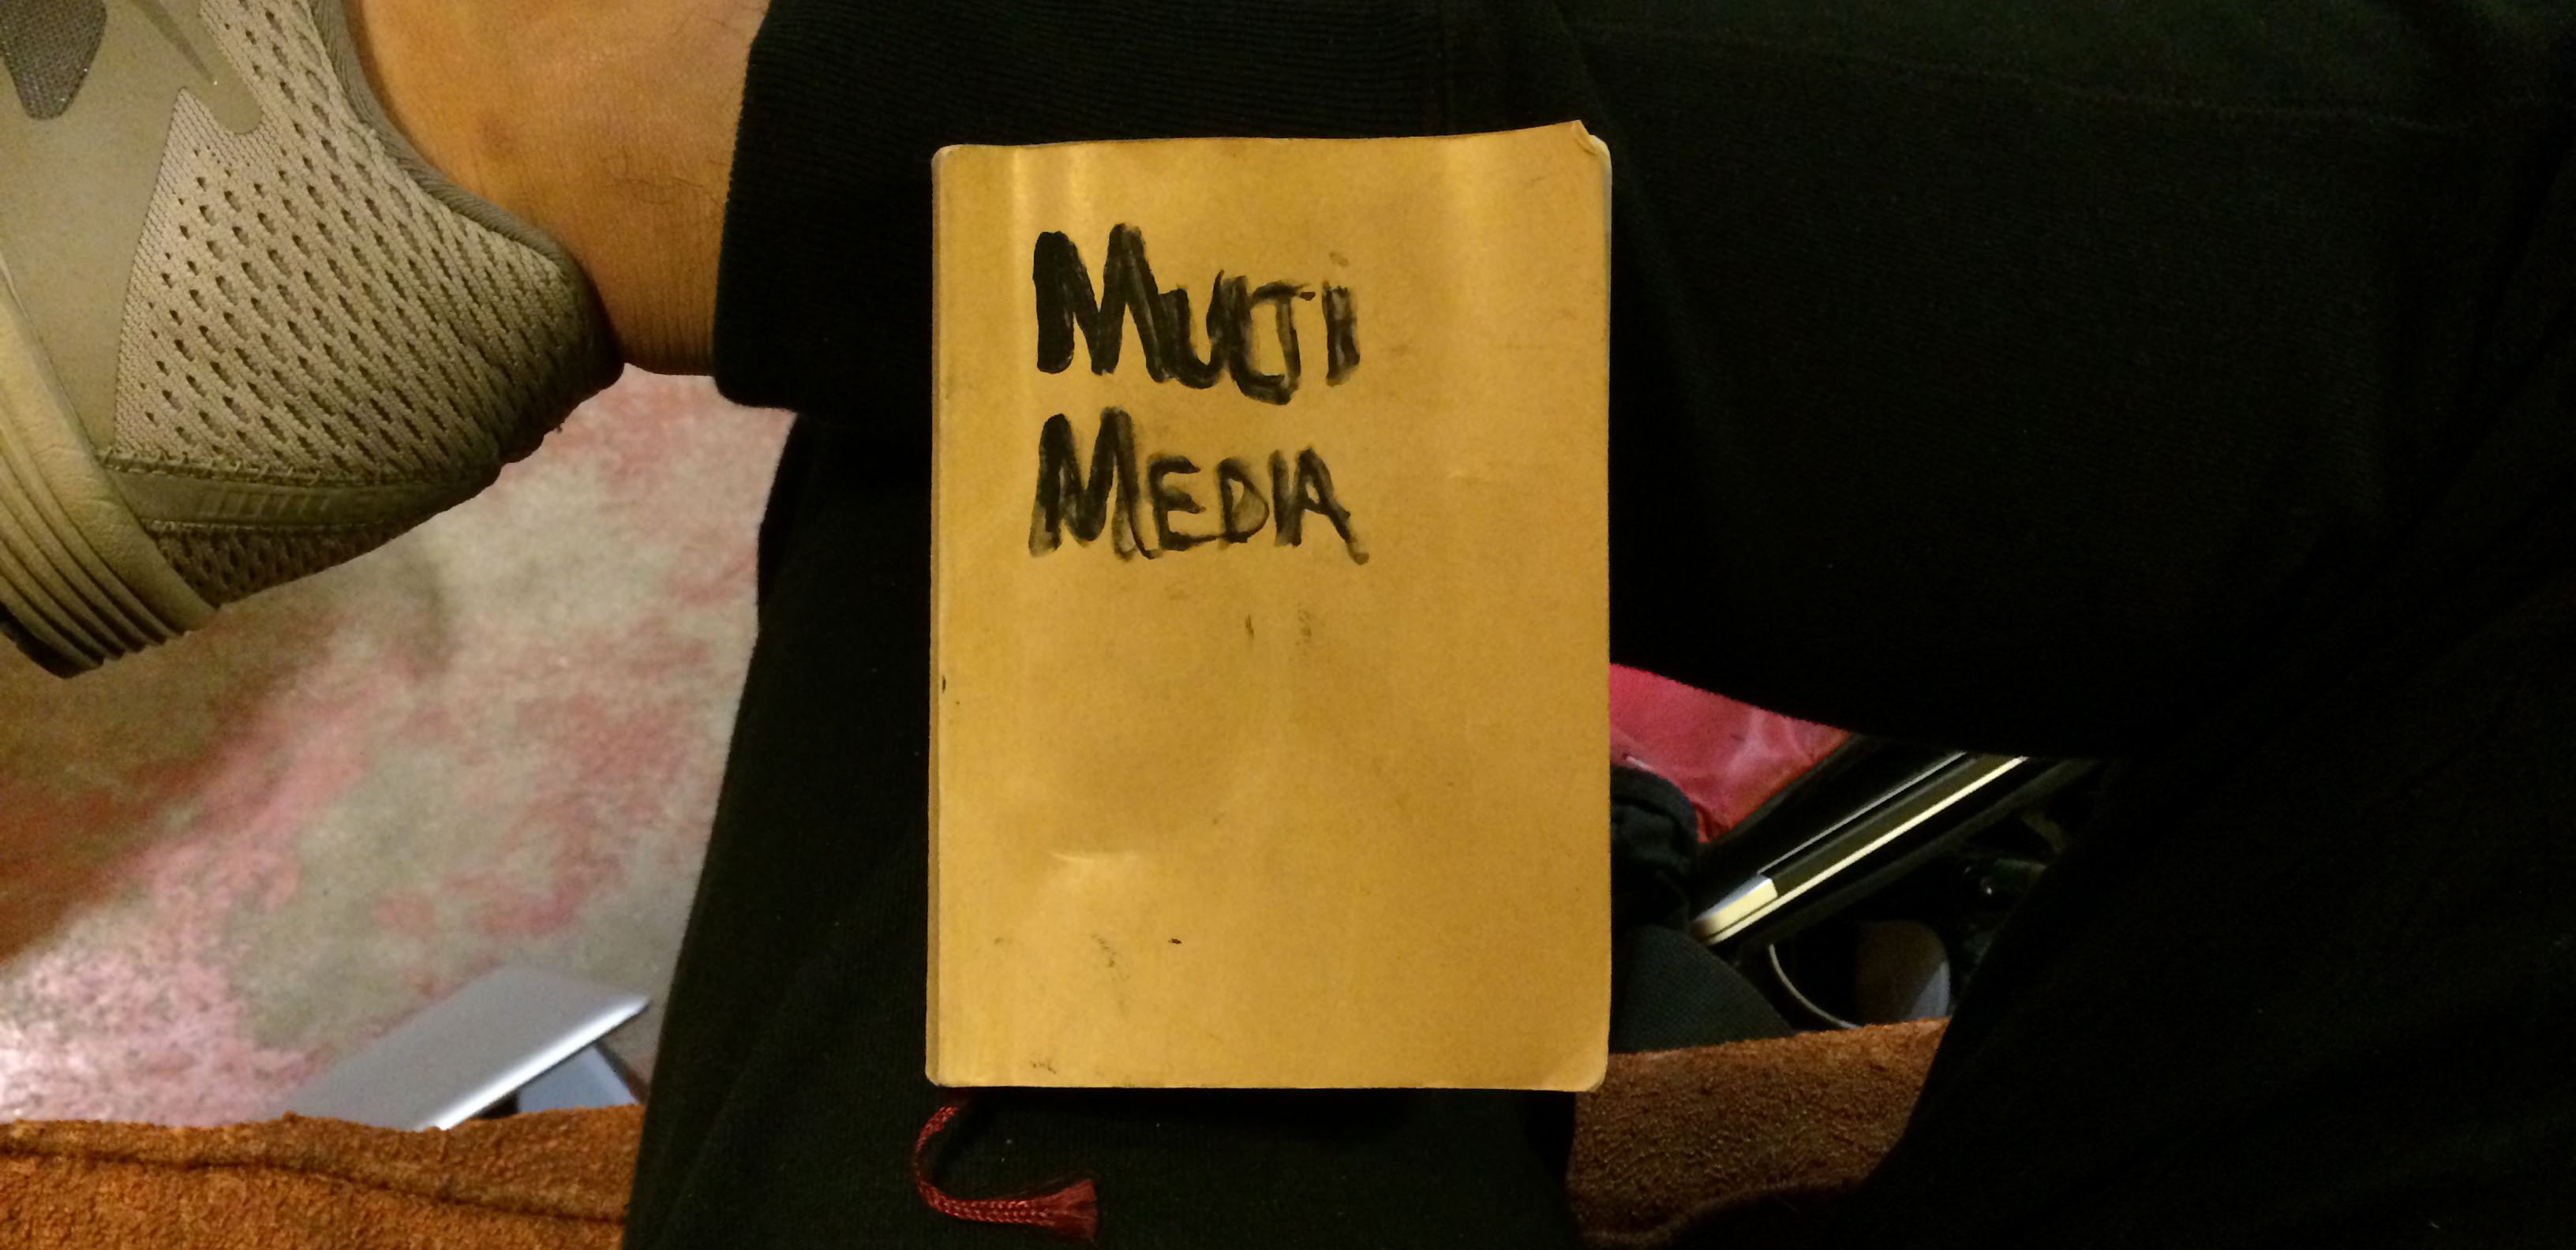 MULTi
MEDIA